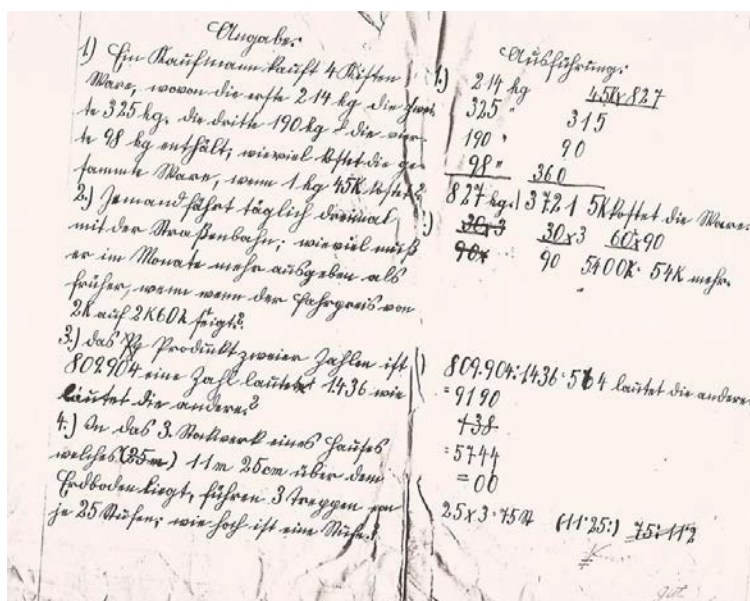 Angabe:
1.) Ein Kaufmann kauft 4 Kisten
Ware, wovon die erste 214 kg die zwei-
te 325 kg, die dritte 190 kg & die vier-
te 98 kg enthält; wieviel kostet die ge-
samte Ware, wenn 1 kg 45K kostet?
2.) Jemand fährt täglich dreimal
mit der Straßenbahn; wieviel muß
er im Monate mehr ausgeben als
früher, wenn wenn der Fahrpreis von
2K auf 2K60h steigt?
3.) Das Produkt zweier Zahlen ist
809.904 eine Zahl lautet 1436 wie
lautet die andere?
4.) In das 3. Stockwerk eines Hauses
welches (25m) 11m 25cm über dem
Erdboden liegt, führen 3 Treppen von
je 25 Stufen; wie hoch ist eine Stufe?
Ausführung:
1.) 214 kg 45K×827
325 " 315
190 " 90
98 " 360
827 kg. 3721 5K kostet die Ware.
30×3 30×3 60×90
90× 90 5400h = 54K mehr.
809.904:1436=564 lautet die andere
=9190
438
=5744
=00
25×3=75St (11.25:) 75:112
gut